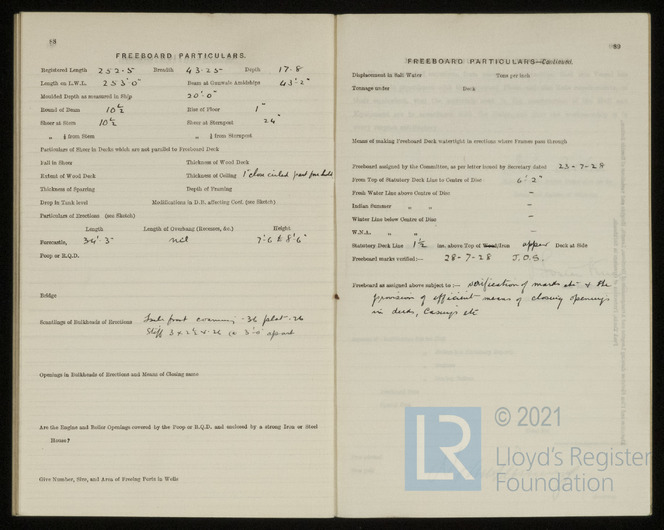 88
FREEBOARD PARTICULARS.
Registered Length 252.5 Breadth 43.25 Depth 17.8
Length on L.W.L. 253'0" Beam at Gunwale Amidships 43'2"
Moulded Depth as measured in Ship 20'0"
Round of Beam 10½ Rise of Floor 1"
Sheer at Stem 10½ Sheer at Sternpost 24"
„ ⅛ from Stem „ ⅛ from Sternpost
Particulars of Sheer in Decks which are not parallel to Freeboard Deck
Fall in Sheer Thickness of Wood Deck
Extent of Wood Deck Thickness of Ceiling 1" close ceiled fore hold
Thickness of Sparring Depth of Framing
Drop in Tank level Modifications in D.B. affecting Coef. (see Sketch)
Particulars of Erections (see Sketch)
Length Length of Overhang (Recesses, &c.) Height
Forecastle, 34'.3" nil 7'.6 to 8'6"
Poop or R.Q.D.
Bridge
Scantlings of Bulkheads of Erections front .36 plat .26
Stiff 3 x 2½ x .26 @ 3'0" apart
Openings in Bulkheads of Erections and Means of Closing same
Are the Engine and Boiler Openings covered by the Poop or R.Q.D. and enclosed by a strong Iron or Steel
House?
Give Number, Size, and Area of Freeing Ports in Wells
89
FREEBOARD PARTICULARS—Continued.
Displacement in Salt Water Tons per inch
Tonnage under Deck
Means of making Freeboard Deck watertight in erections where Frames pass through
Freeboard assigned by the Committee, as per letter issued by Secretary dated 23-7-28
From Top of Statutory Deck Line to Centre of Disc 6'.2"
Fresh Water Line above Centre of Disc –
Indian Summer „ „ –
Winter Line below Centre of Disc –
W.N.A. „ „ –
Statutory Deck Line 1½ ins. above Top of Wood/Iron upper Deck at Side
Freeboard marks verified:— 28-7-28 J.O.S.
Freeboard as assigned above subject to:— verification of marks etc & the
provision of efficient means of closing openings
in decks, casings etc
LR © 2021
Lloyd's Register
Foundation